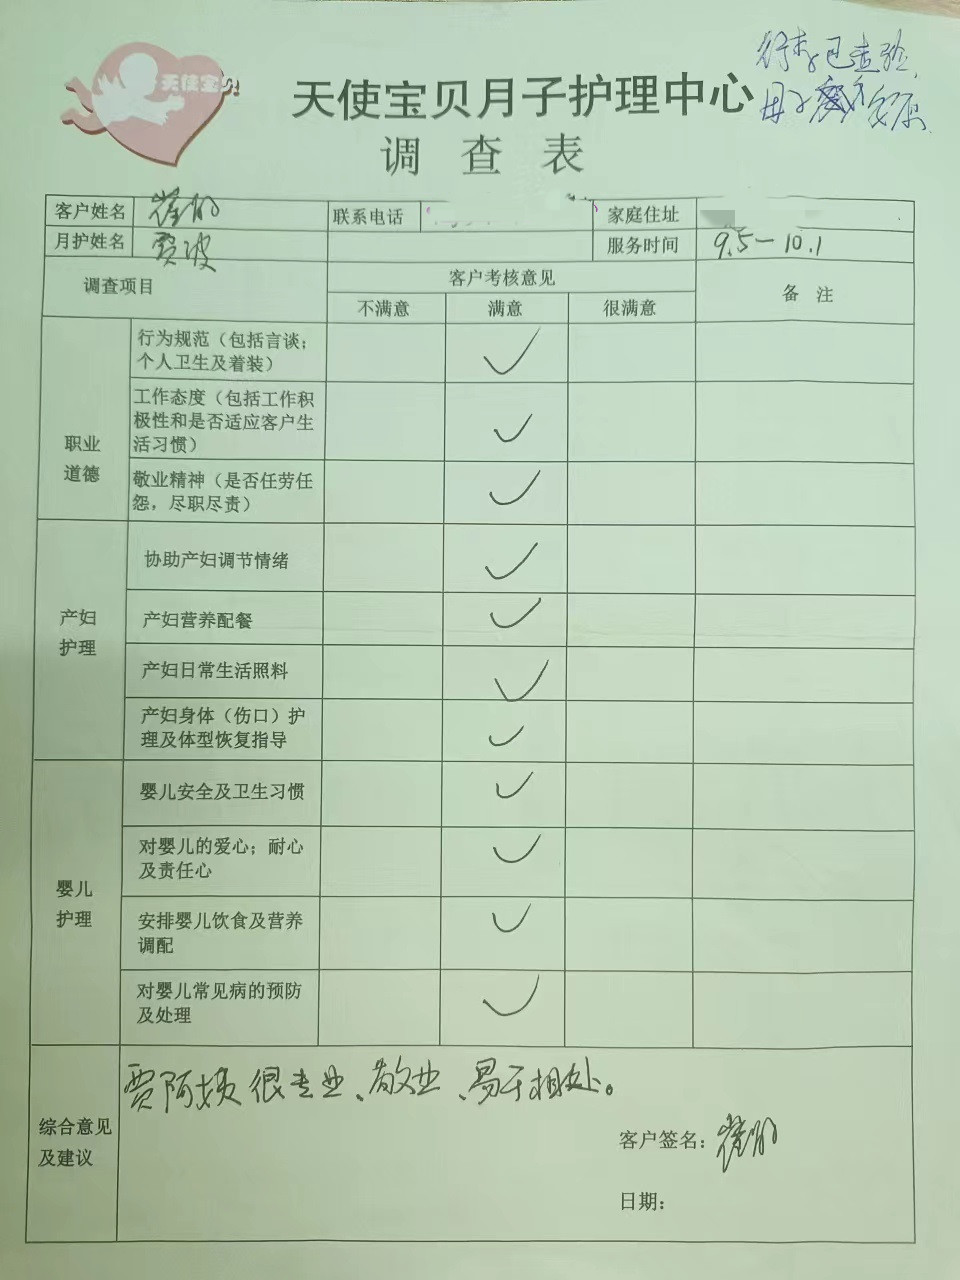 天使宝贝
行李已查验,
天使宝贝月子护理中心
调查表
客户姓名 联系电话 家庭住址
月护姓名 贾波 服务时间 9.5-10.1
调查项目 客户考核意见 备注
不满意 满意 很满意
职业道德
行为规范(包括言谈;
个人卫生及着装)
工作态度(包括工作积
极性和是否适应客户生
活习惯)
敬业精神(是否任劳任
怨,尽职尽责)
产妇护理
协助产妇调节情绪
产妇营养配餐
产妇日常生活照料
产妇身体(伤口)护
理及体型恢复指导
婴儿护理
婴儿安全及卫生习惯
对婴儿的爱心;耐心
及责任心
安排婴儿饮食及营养
调配
对婴儿常见病的预防
及处理
综合意见
及建议
贾阿姨很专业、敬业、易于相处。
客户签名:
日期: